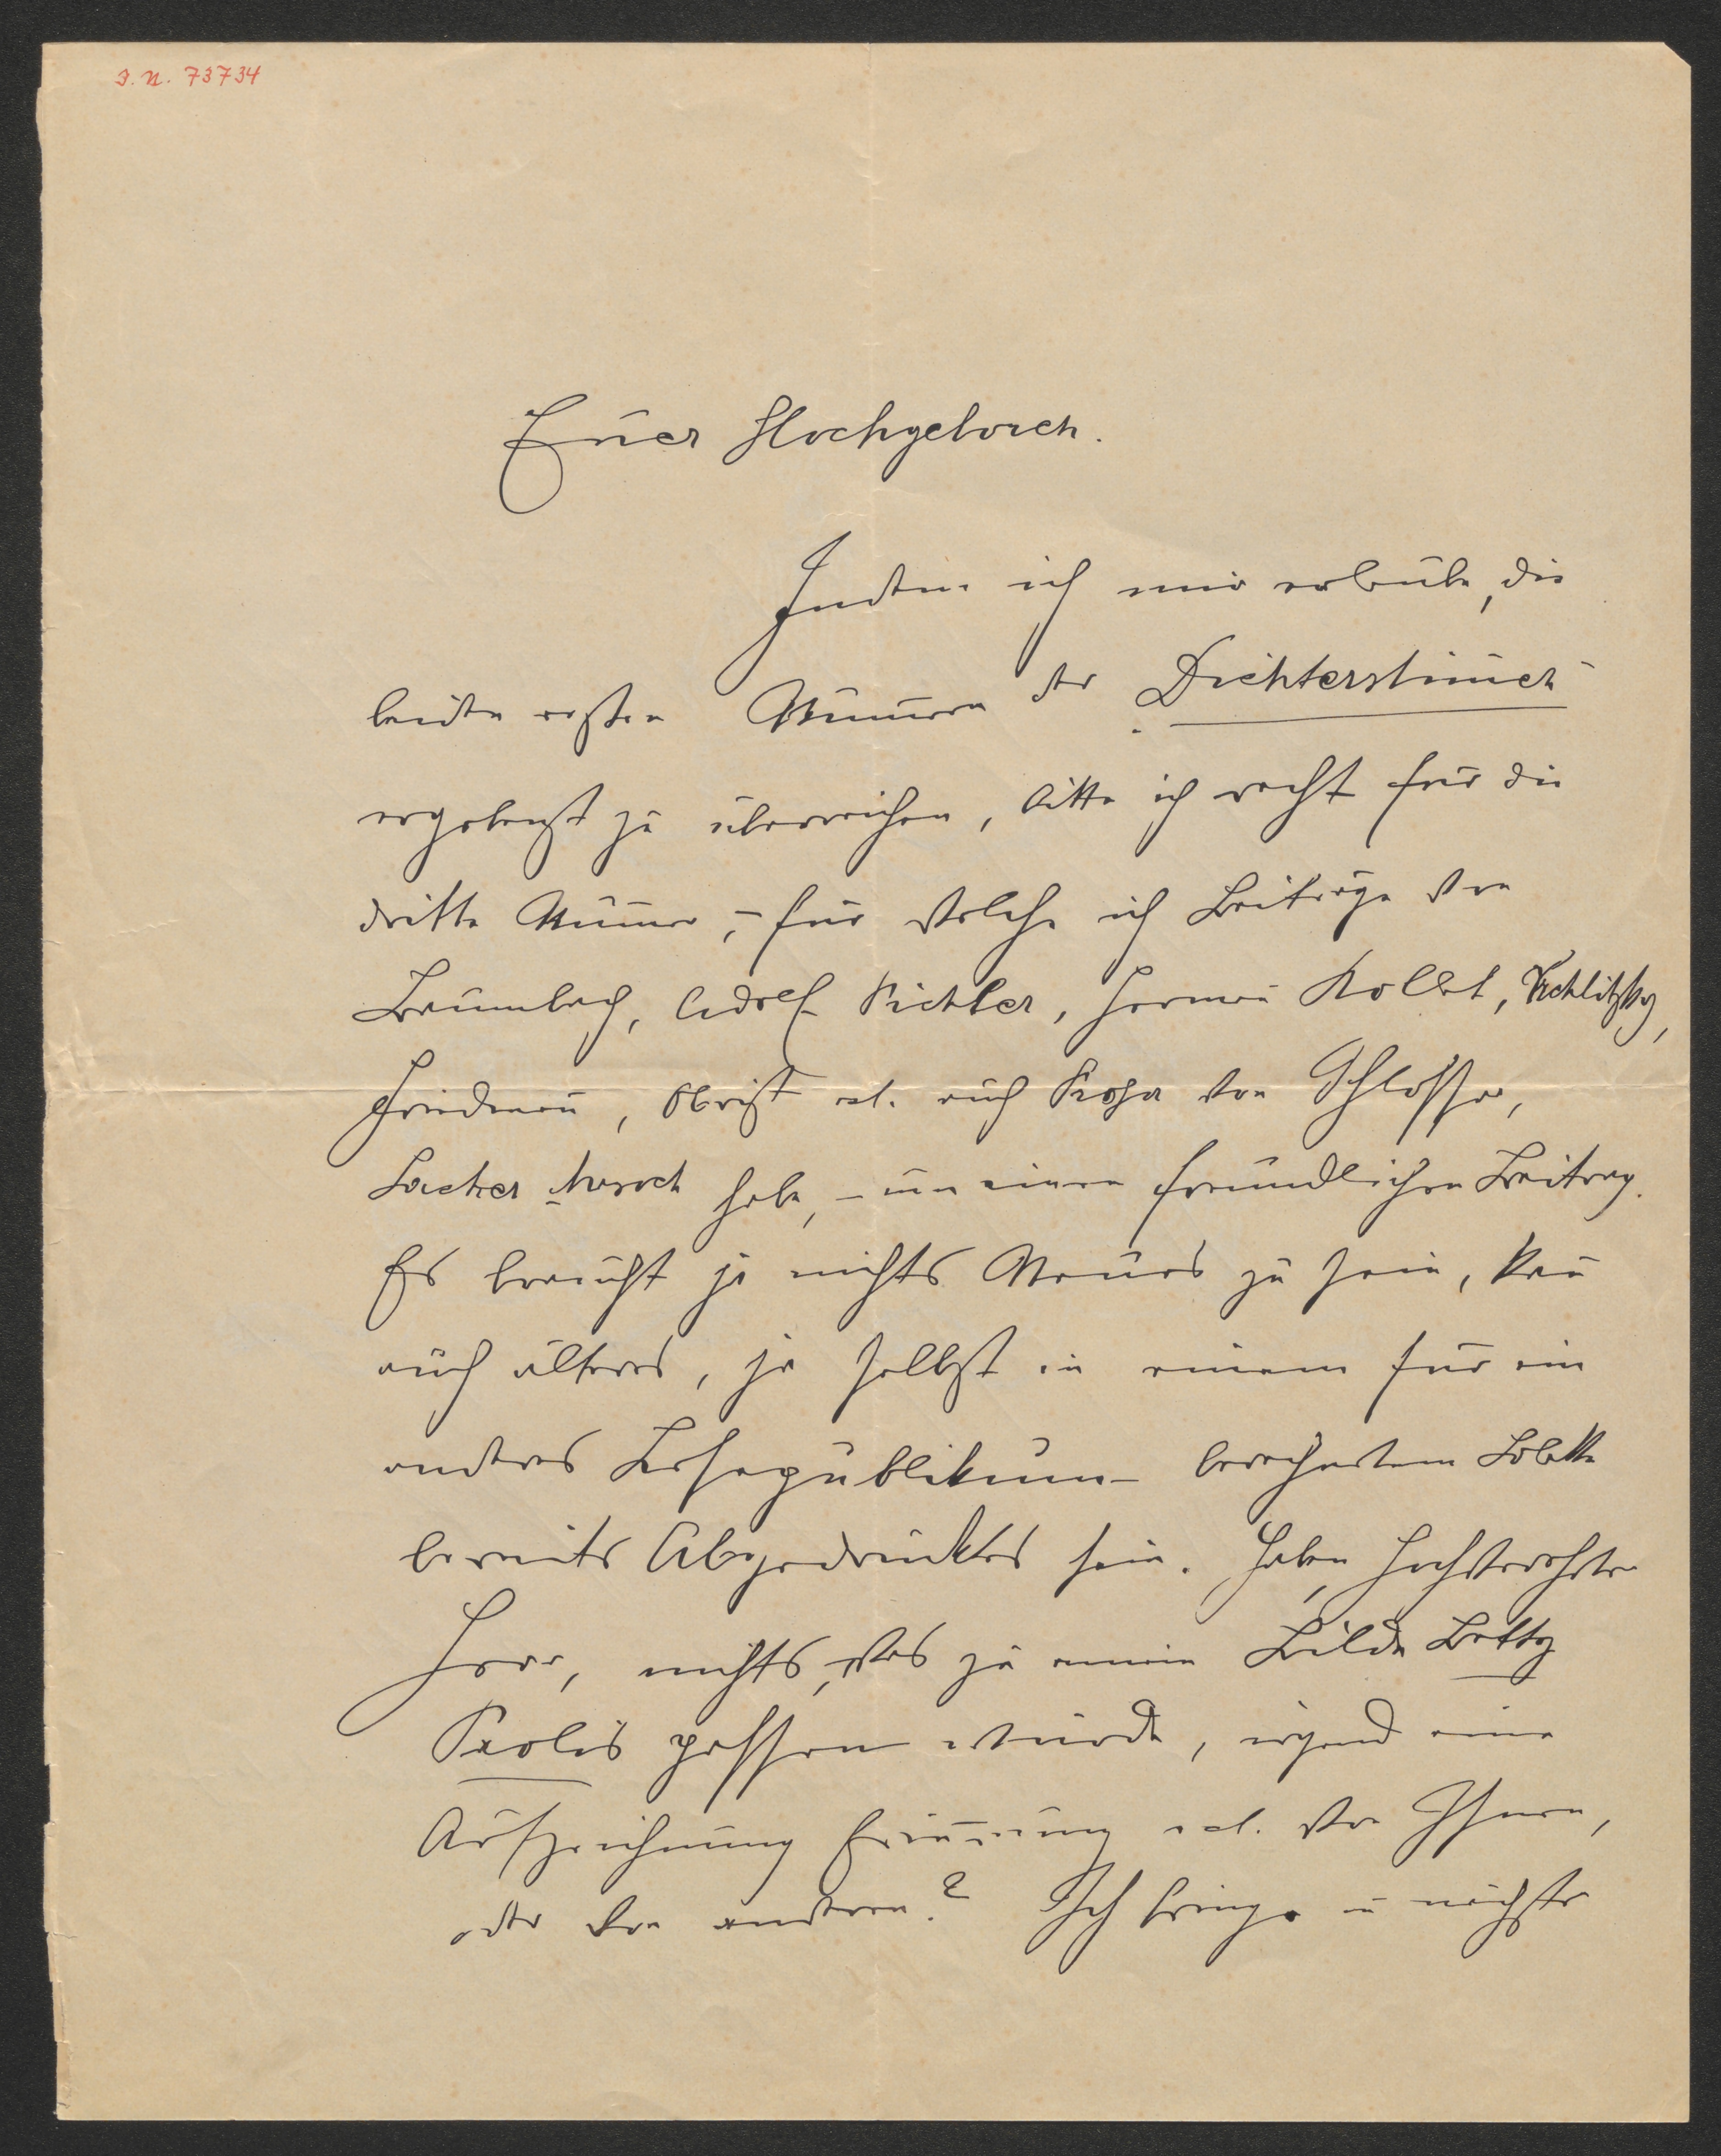 I. N. 73734
Euer Hochgeboren.
Indem ich mir erlaube, die
beiden ersten Num̄ern der „Dichterstim̄en“
ergebenst zu überreichen, bitte ich recht für die
dritte Num̄er, – für welche ich Beiträge von
Baumbach, Adolf Pichler, Herman̄ Rollet,
Friedman̄, Obrist etc. auch Prosa von Schlossar,
Sacher Masoch habe, – um einen freundlichen Beitrag.
Es braucht ja nichts Neues zu sein, kan̄
auch älteres, ja selbst in einem für ein
anderes Lesepublikum berechnetem Blatte
bereits Abgedrucktes sein. Haben, hochverehrter
Herr, nichts, was zu meinem Bilde Betty
Paolis passen würde, irgend eine
Aufzeichnung Erin̄erung etc. von Ihnen,
oder von anderen? Ich bringe in nächster